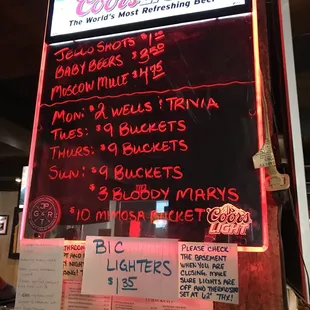 Coors
The World's Most Refreshing Beer
JELLO SHOTS
BABY BEERS $3.50
MOSCOW MULE $4.95
MON: $2 WELLS! TRIVIA
TUES: $9 BUCKETS
THURS: $9 BUCKETS
SUN: $9 BUCKETS
$3 BLOODY MARYS
$10 MIMOSA BUCKET
Coors
LIGHT
BIC
LIGHTERS
$1.35
PLEASE CHECK
THE BASEMENT
WHEN YOU ARE
CLOSING. MAKE
SURE LIGHTS ARE
OFF AND THERMOSTAT
SET AT 62° THX!